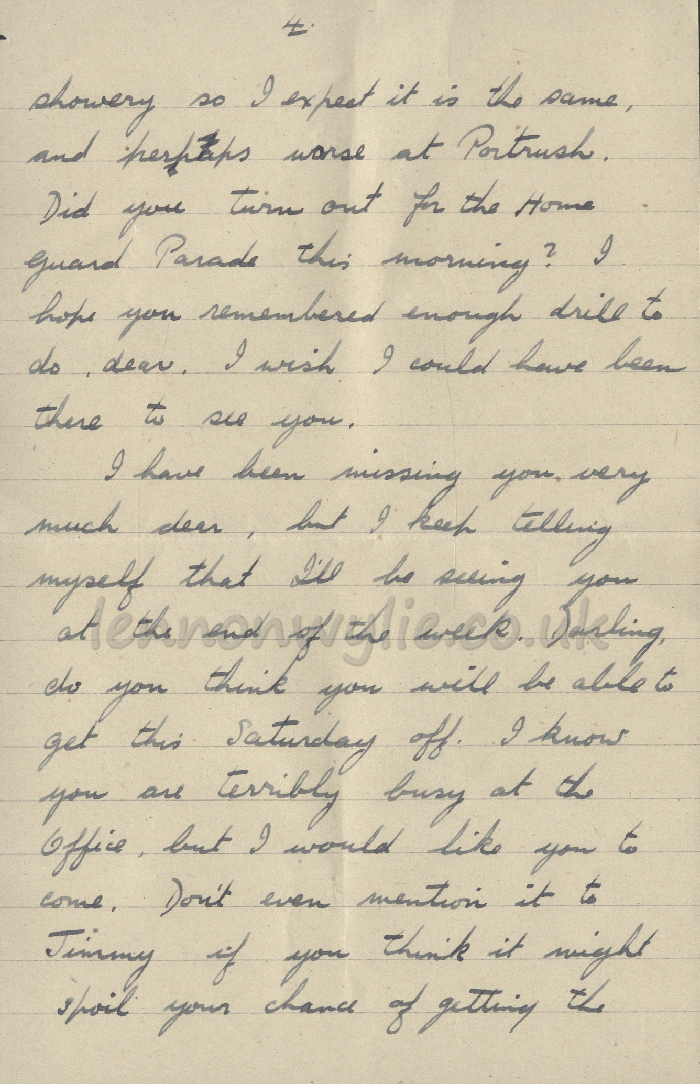 4.
showery so I expect it is the same,
and perhaps worse at Portrush.
Did you turn out for the Home
Guard Parade this morning? I
hope you remembered enough drill to
do, dear. I wish I could have been
there to see you.
I have been missing you very
much dear, but I keep telling
myself that I'll be seeing you
at the end of the week. Darling,
lennonwylie.co.uk
do you think you will be able to
get this Saturday off. I know
you are terribly busy at the
Office, but I would like you to
come. Don't even mention it to
Jimmy if you think it might
spoil your chance of getting the